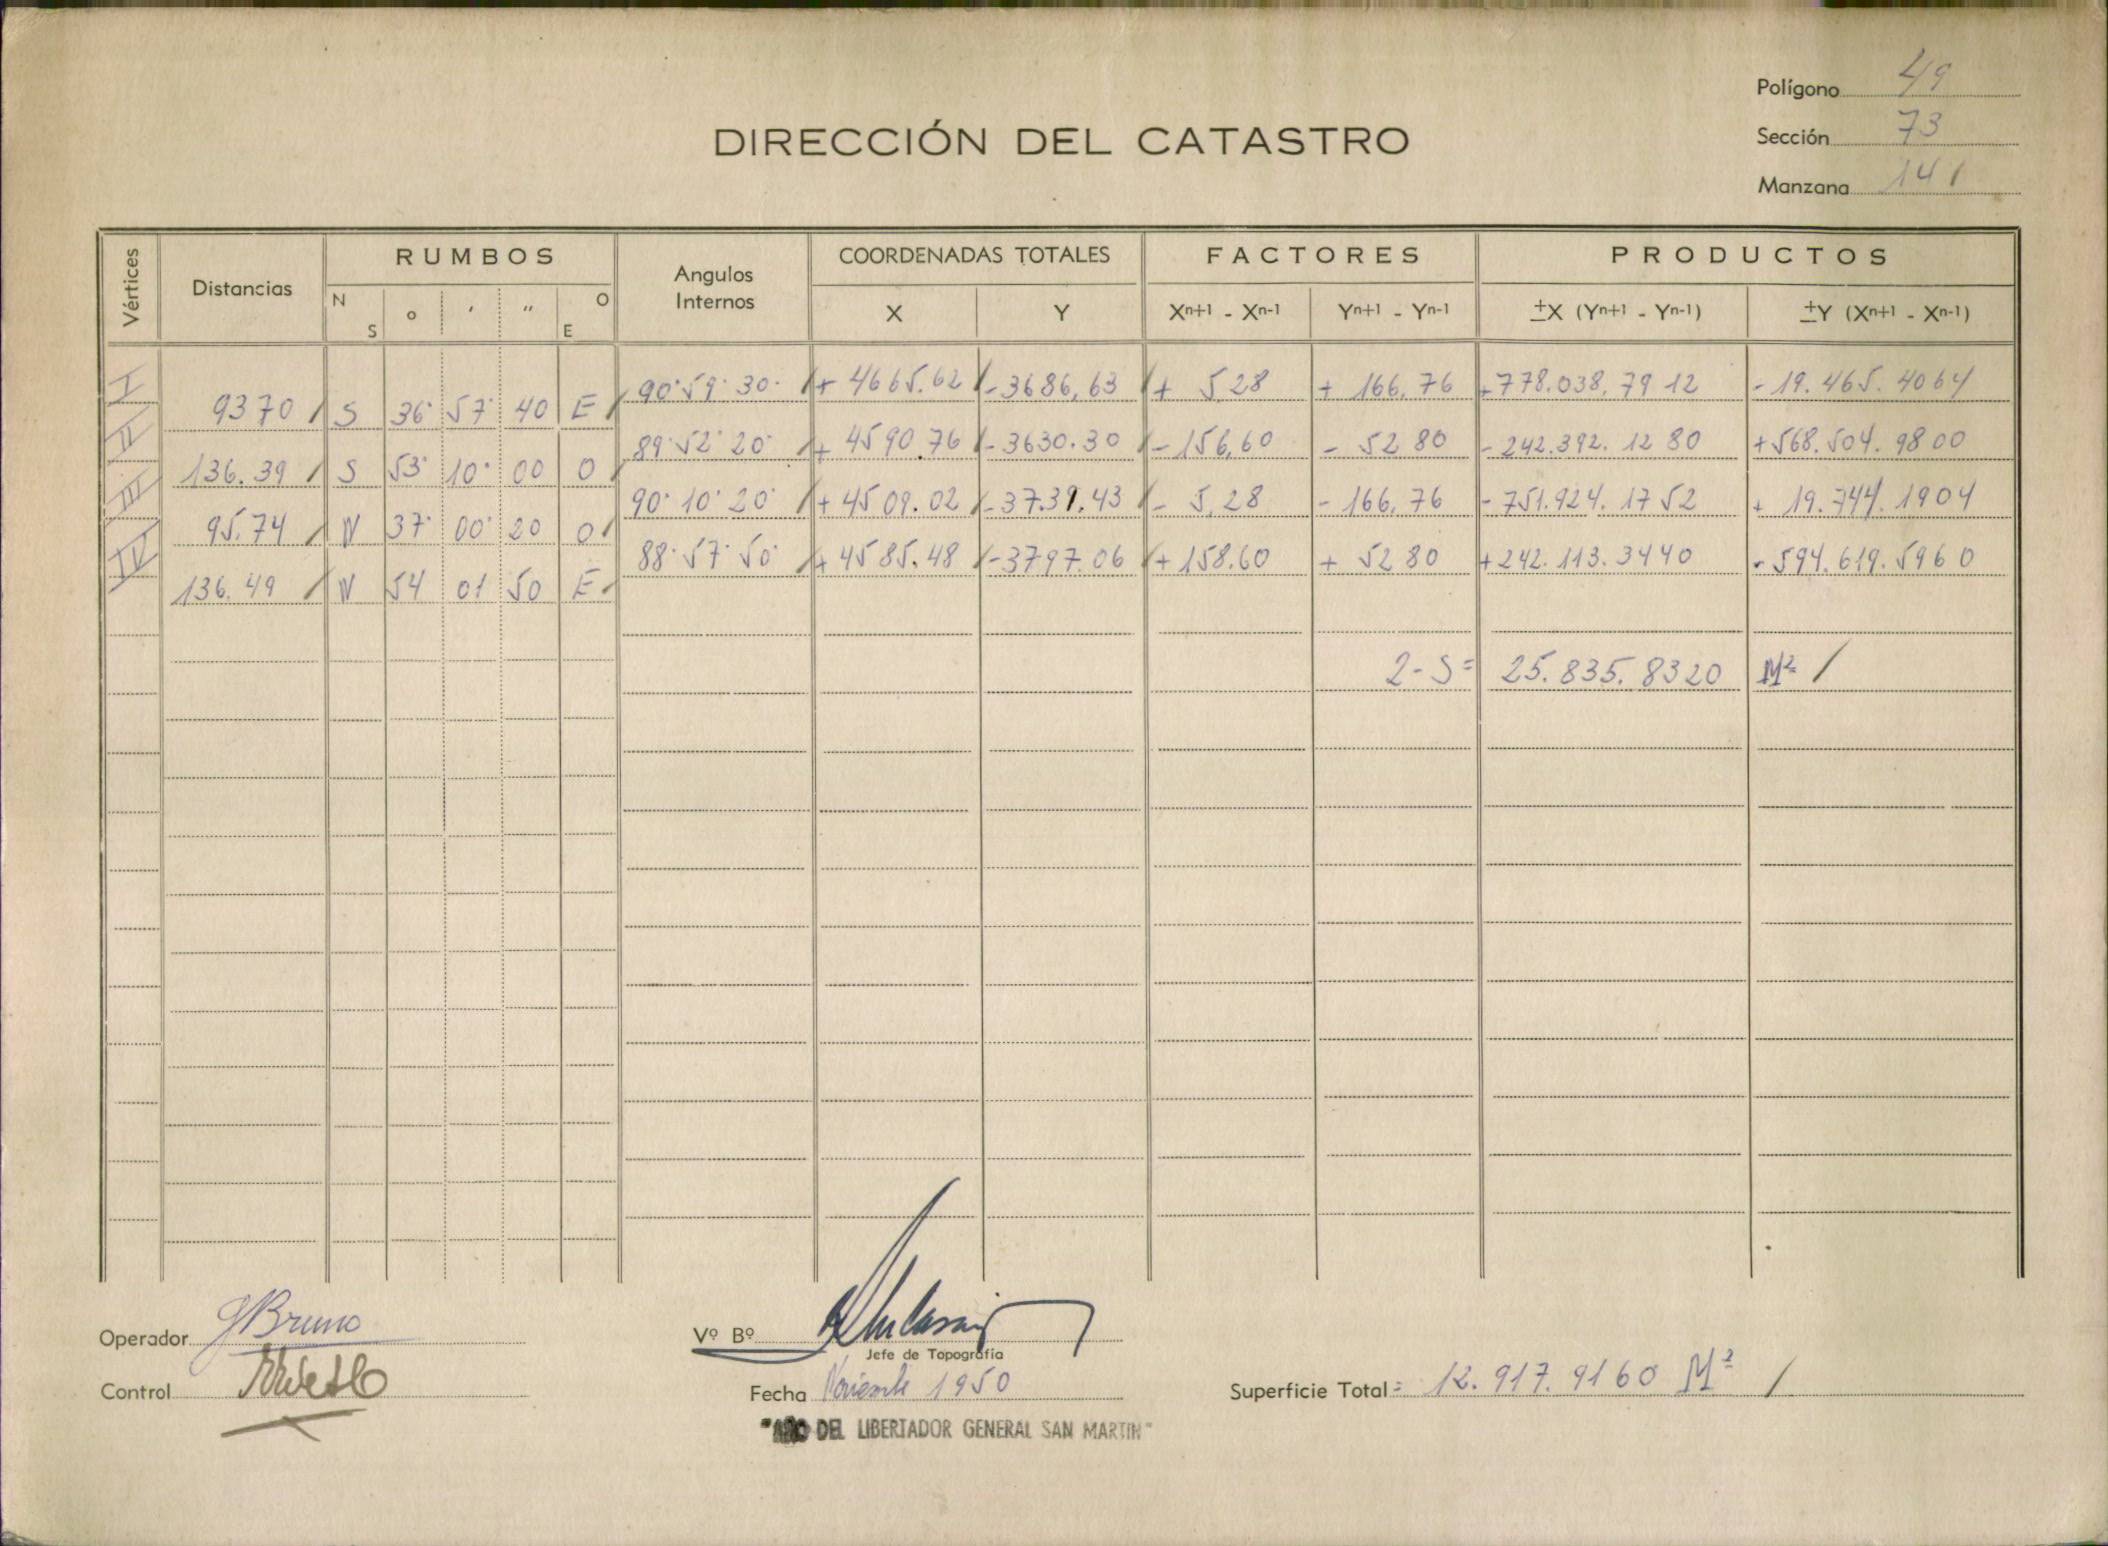 Polígono 49
DIRECCIÓN DEL CATASTRO
Sección 73
Manzana 141
Vértices Distancias RUMBOS Angulos Internos COORDENADAS TOTALES FACTORES PRODUCTOS
N S ° ′ ″ O E X Y Xn+1 - Xn-1 Yn+1 - Yn-1 ±X (Yn+1 - Yn-1) ±Y (Xn+1 - Xn-1)
I 90° 59' 30" + 4665.62 - 3686,63 + 5,28 + 166,76 +778.038,79 12 - 19.465.4064
9370 S 36° 57' 40 E
II 89° 52' 20" + 4590.76 - 3630.30 - 156,60 - 52 80 - 242.392.12 80 +568.504.98 00
136.39 S 53° 10' 00 O
III 90° 10' 20" + 4509.02 - 3739.43 - 5,28 - 166,76 - 751.924.17 52 + 19.744.1904
95.74 N 37° 00' 20 O
IV 88° 57' 50" + 4585.48 - 3797.06 + 158.60 + 52 80 +242.113.3440 - 594.619.5960
136.49 N 54 01 50 E
2-S= 25.835.8320 M²
Operador JBruno
Vº Bº
Jefe de Topografía
Control
Fecha Noviembre 1950
Superficie Total = 12.917.9160 M²
"AÑO DEL LIBERTADOR GENERAL SAN MARTIN"